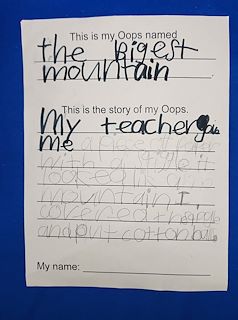 This is my Oops named
the bigest
mountain
This is the story of my Oops.
My teacher gave
me a piece of paper
with a
looked like a
mountain I
covered
and put cotton balls
My name: